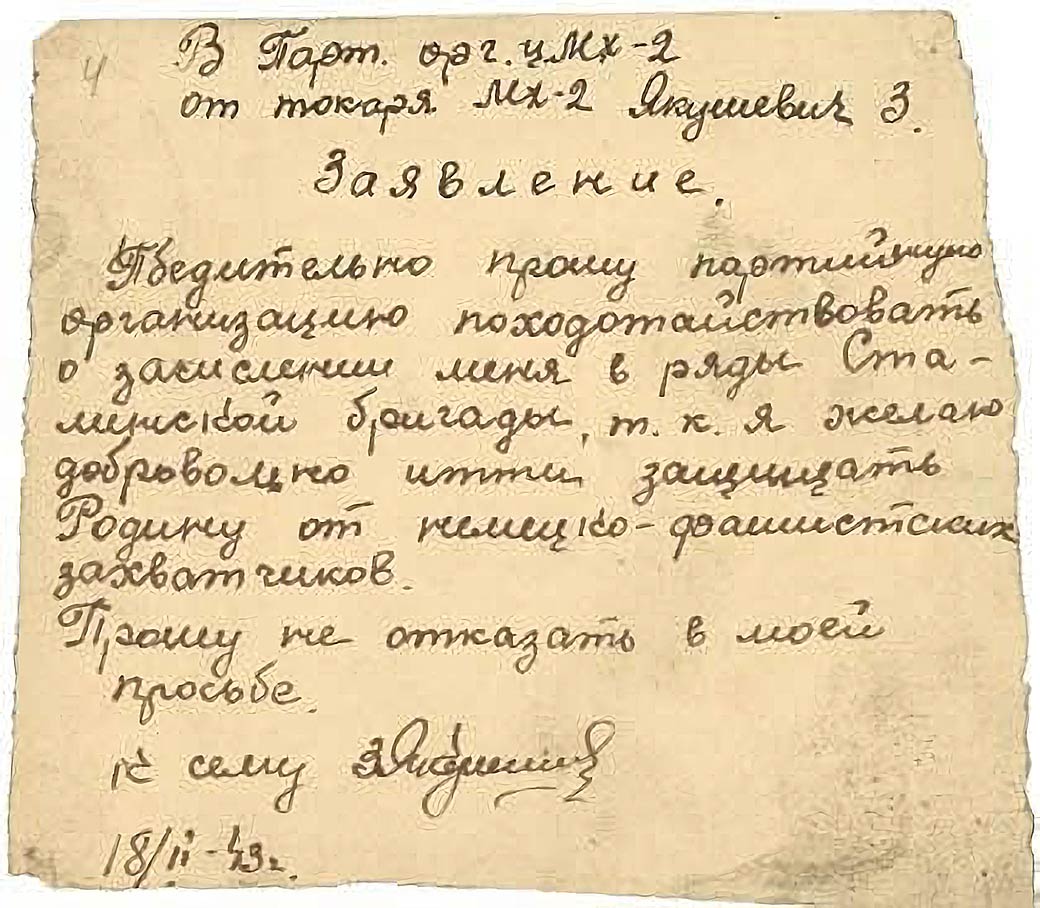 4
В Парт. орг. ц. Мх-2
от токаря Мх-2 Якушевич З.
Заявление.
Убедительно прошу партийную
организацию походотайствовать
о зачислении меня в ряды Ста-
линской бригады, т. к. я желаю
добровольно итти защищать
Родину от немецко-фашистских
захватчиков.
Прошу не отказать в моей
просьбе.
К сему ЗЯкушевич
18/II-43г.